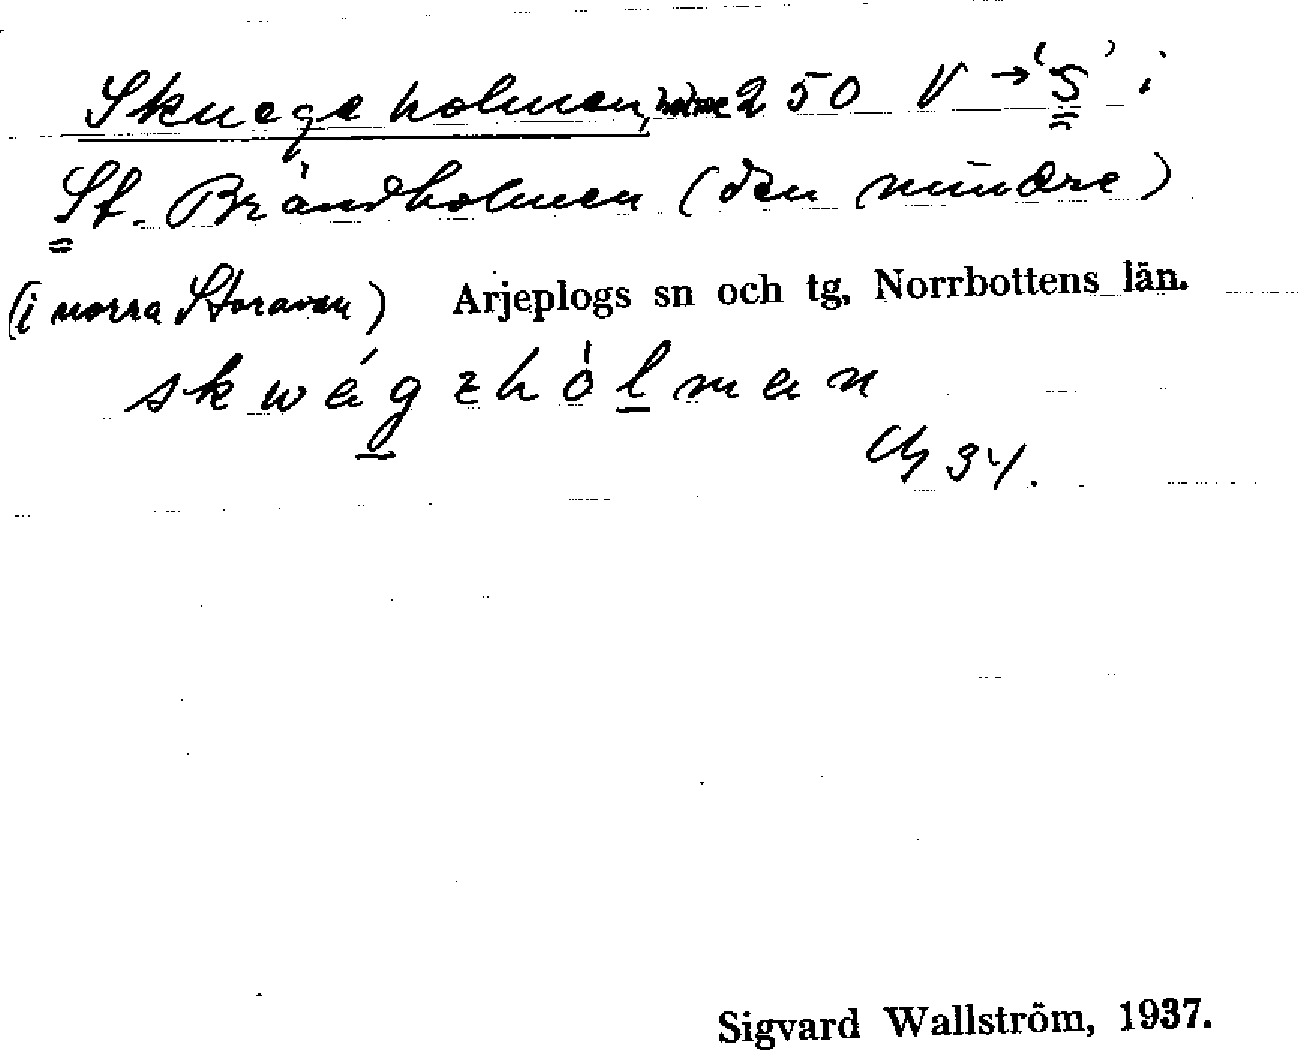 Skuegeholmen, holme 250 V → 'S' i
St. Brändholmen (den mindre)
(i norra Storavan) Arjeplogs sn och tg, Norrbottens län.
skwégzhólman
34.
Sigvard Wallström, 1937.